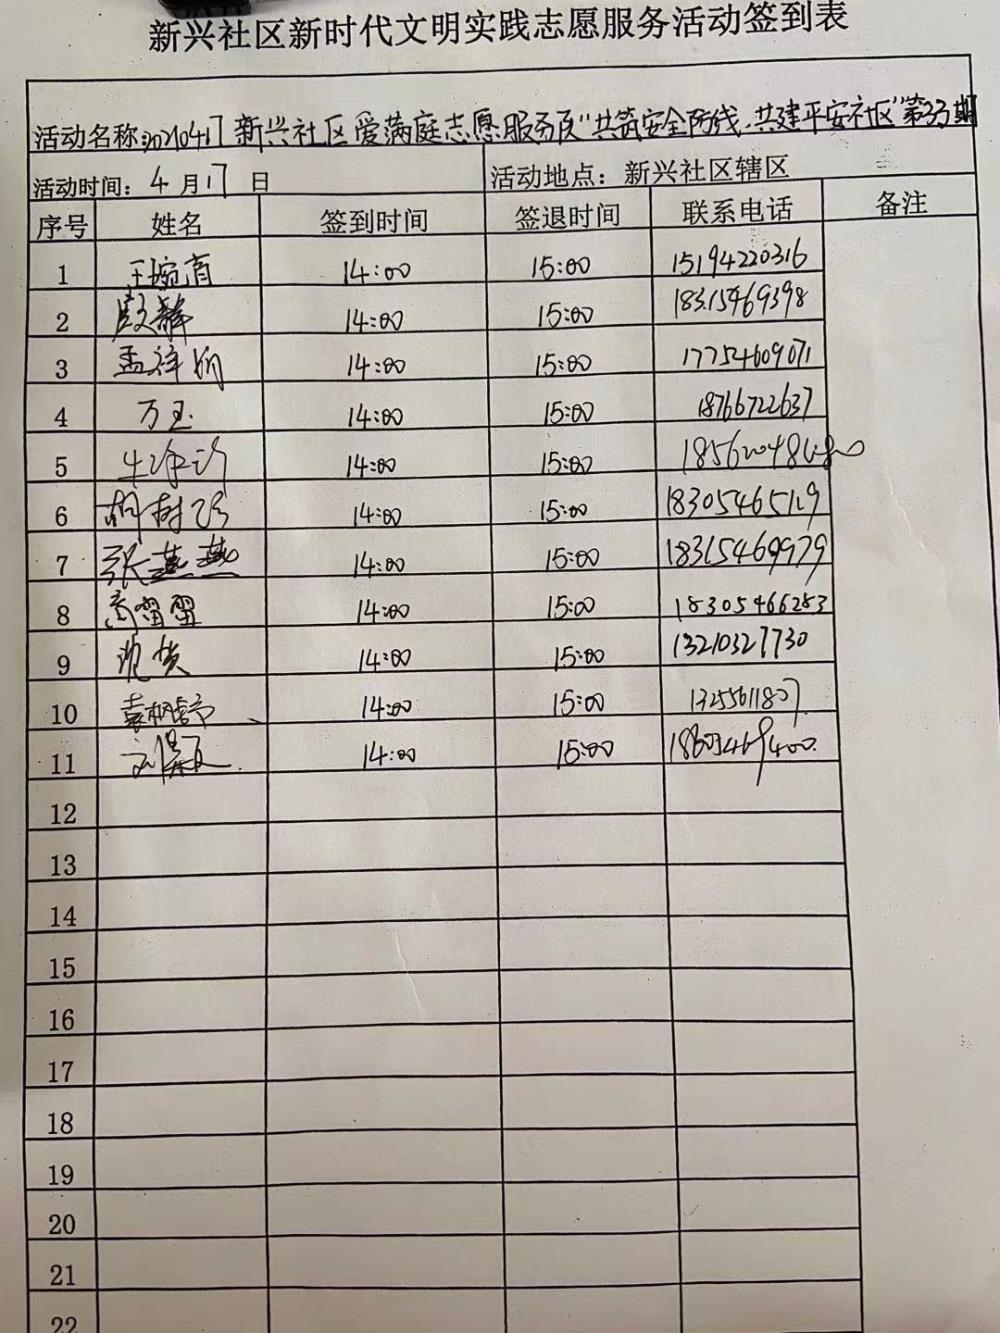 新兴社区新时代文明实践志愿服务活动签到表
活动名称:20210417新兴社区爱满庭志愿服务队"共筑安全防线、共建平安社区"第33期
活动时间: 4 月 17 日 活动地点: 新兴社区辖区
序号 姓名 签到时间 签退时间 联系电话 备注
1 14:00 15:00 15194220316
2 14:00 15:00 18315469398
3 孟祥娟 14:00 15:00 17754609071
4 万玉 14:00 15:00 18766722637
5 14:00 15:00
6 14:00 15:00 18305465129
7 张燕燕 14:00 15:00 18315469979
8 高雷雷 14:00 15:00 18305466283
9 14:00 15:00 13210327730
10 14:00 15:00 13255611807
11 14:00 15:00
12
13
14
15
16
17
18
19
20
21
22